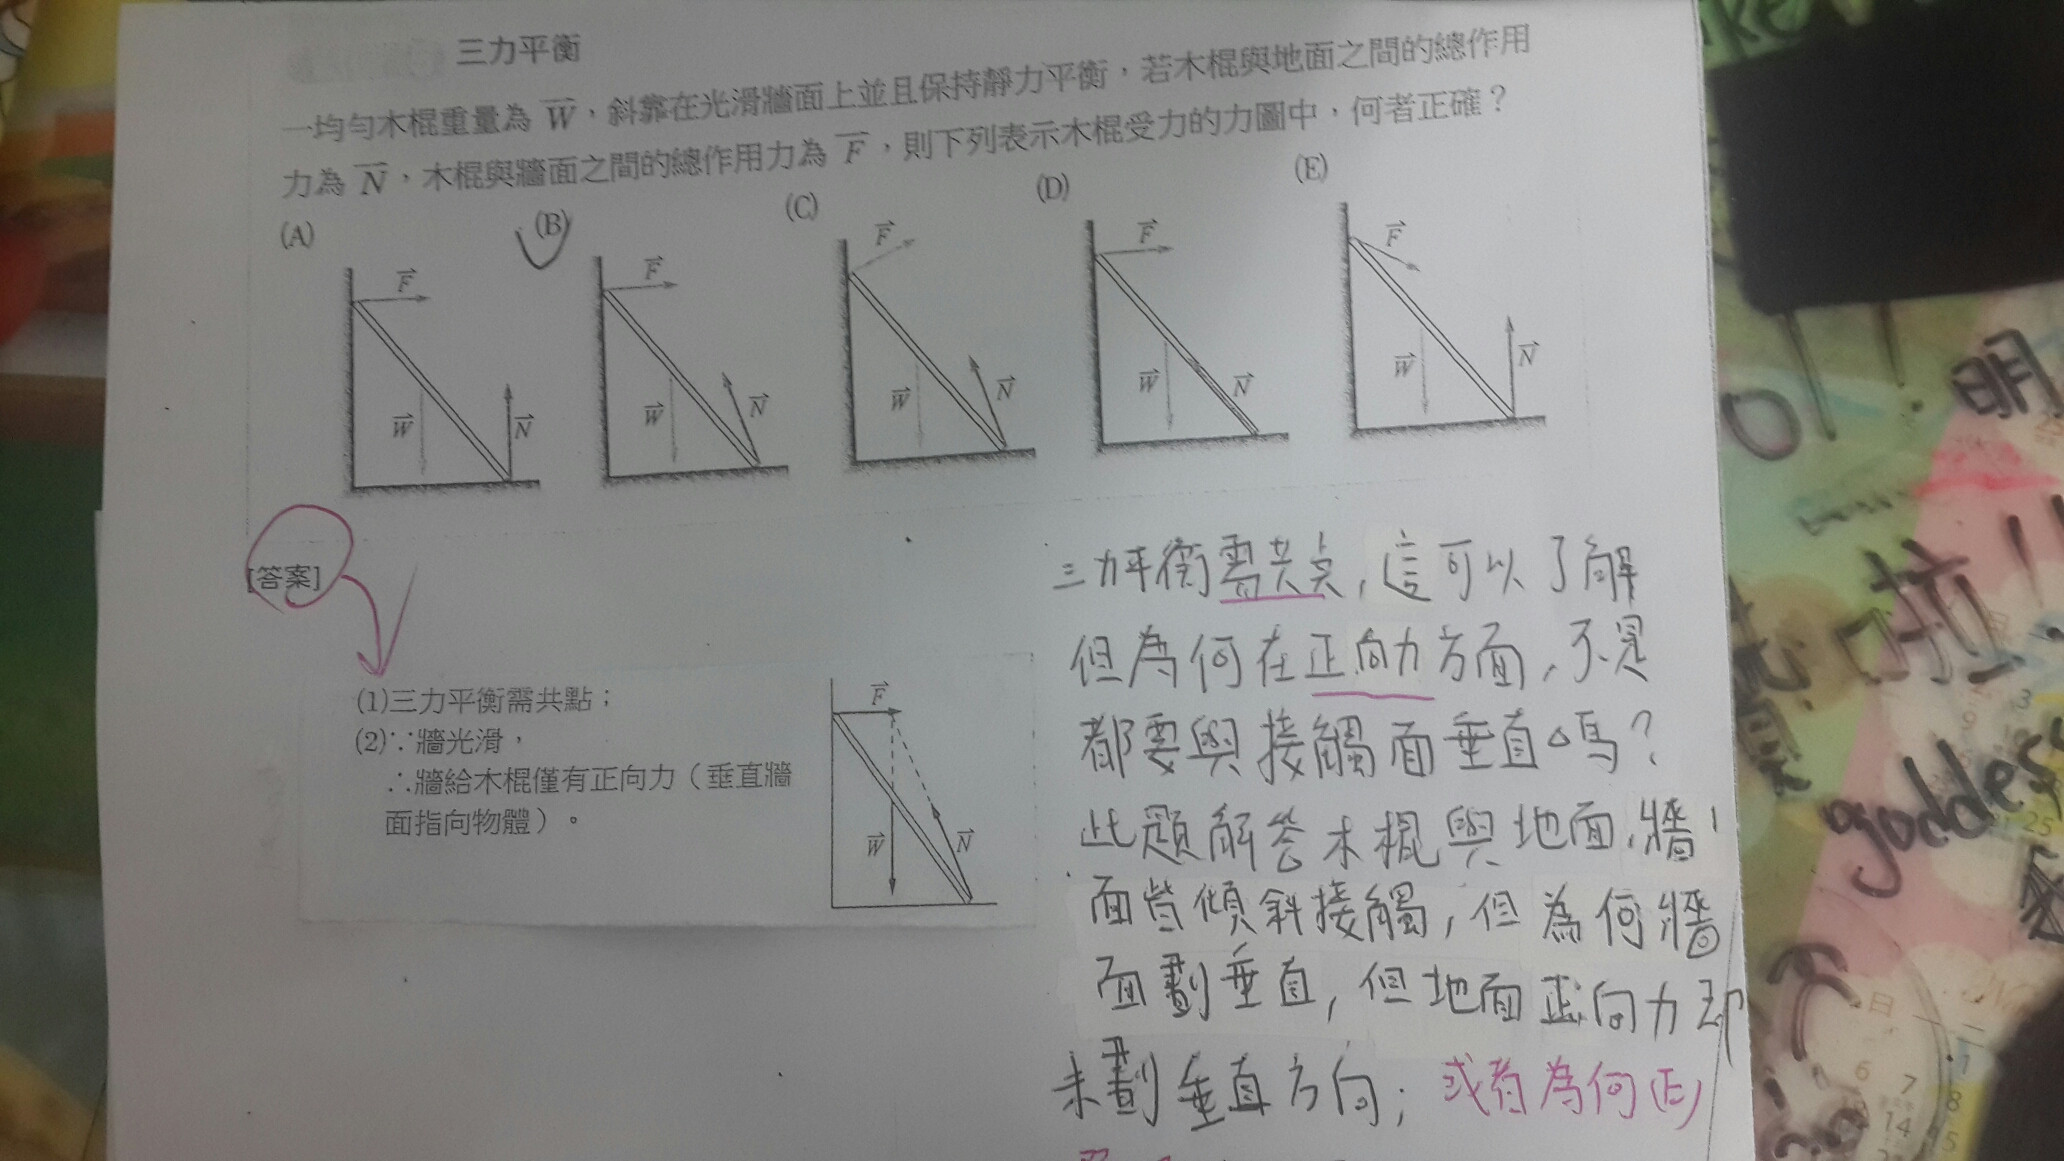 三力平衡
一均勻木棍重量為 W，斜靠在光滑牆面上並且保持靜力平衡，若木棍與地面之間的總作用
力為 N，木棍與牆面之間的總作用力為 F，則下列表示木棍受力的力圖中，何者正確？
(A) (B) (C) (D) (E)
F F F F F
W N W N W N W N W N
[答案]
(1)三力平衡需共點；
(2)∵牆光滑，
∴牆給木棍僅有正向力（垂直牆
面指向物體）。
F
W N
三力平衡需共点，這可以了解
但為何在正向力方面，不是
都要與接觸面垂直嗎？
此題解答木棍與地面、牆
面皆傾斜接觸，但為何牆
面劃垂直，但地面正向力却
未劃垂直方向；或者為何(E)
明
啦!!
goddess
日
1
6 7 8
14
25